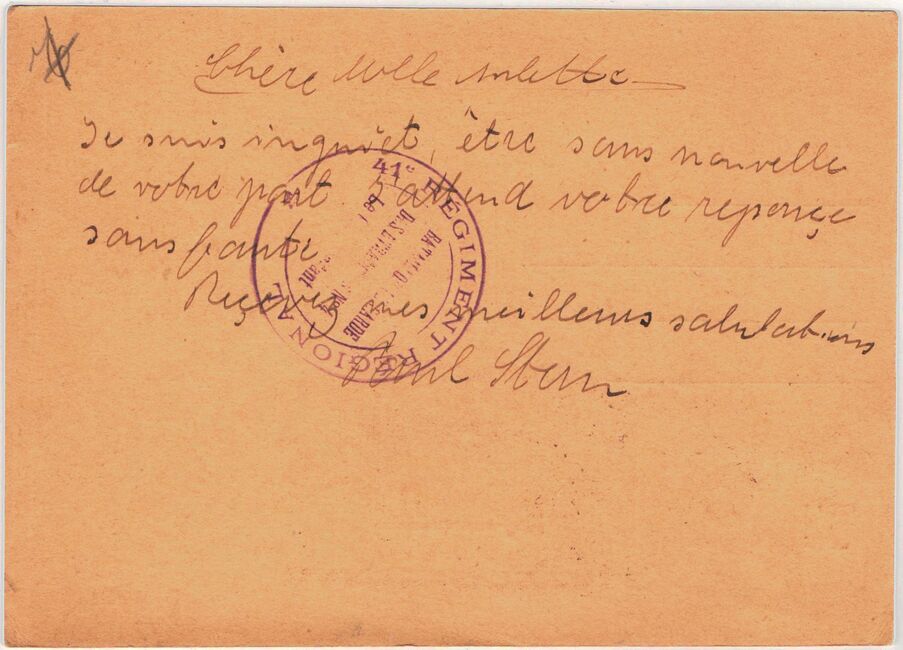 Chère Melle Arlette
Je suis inquiet, être sans nouvelle
de votre part. J'attend votre reponçe
sans faute
Reçevez mes meilleurs salutations
Paul Stern
41e RÉGIMENT RÉGIONAL
BATAILLON DE GARDE